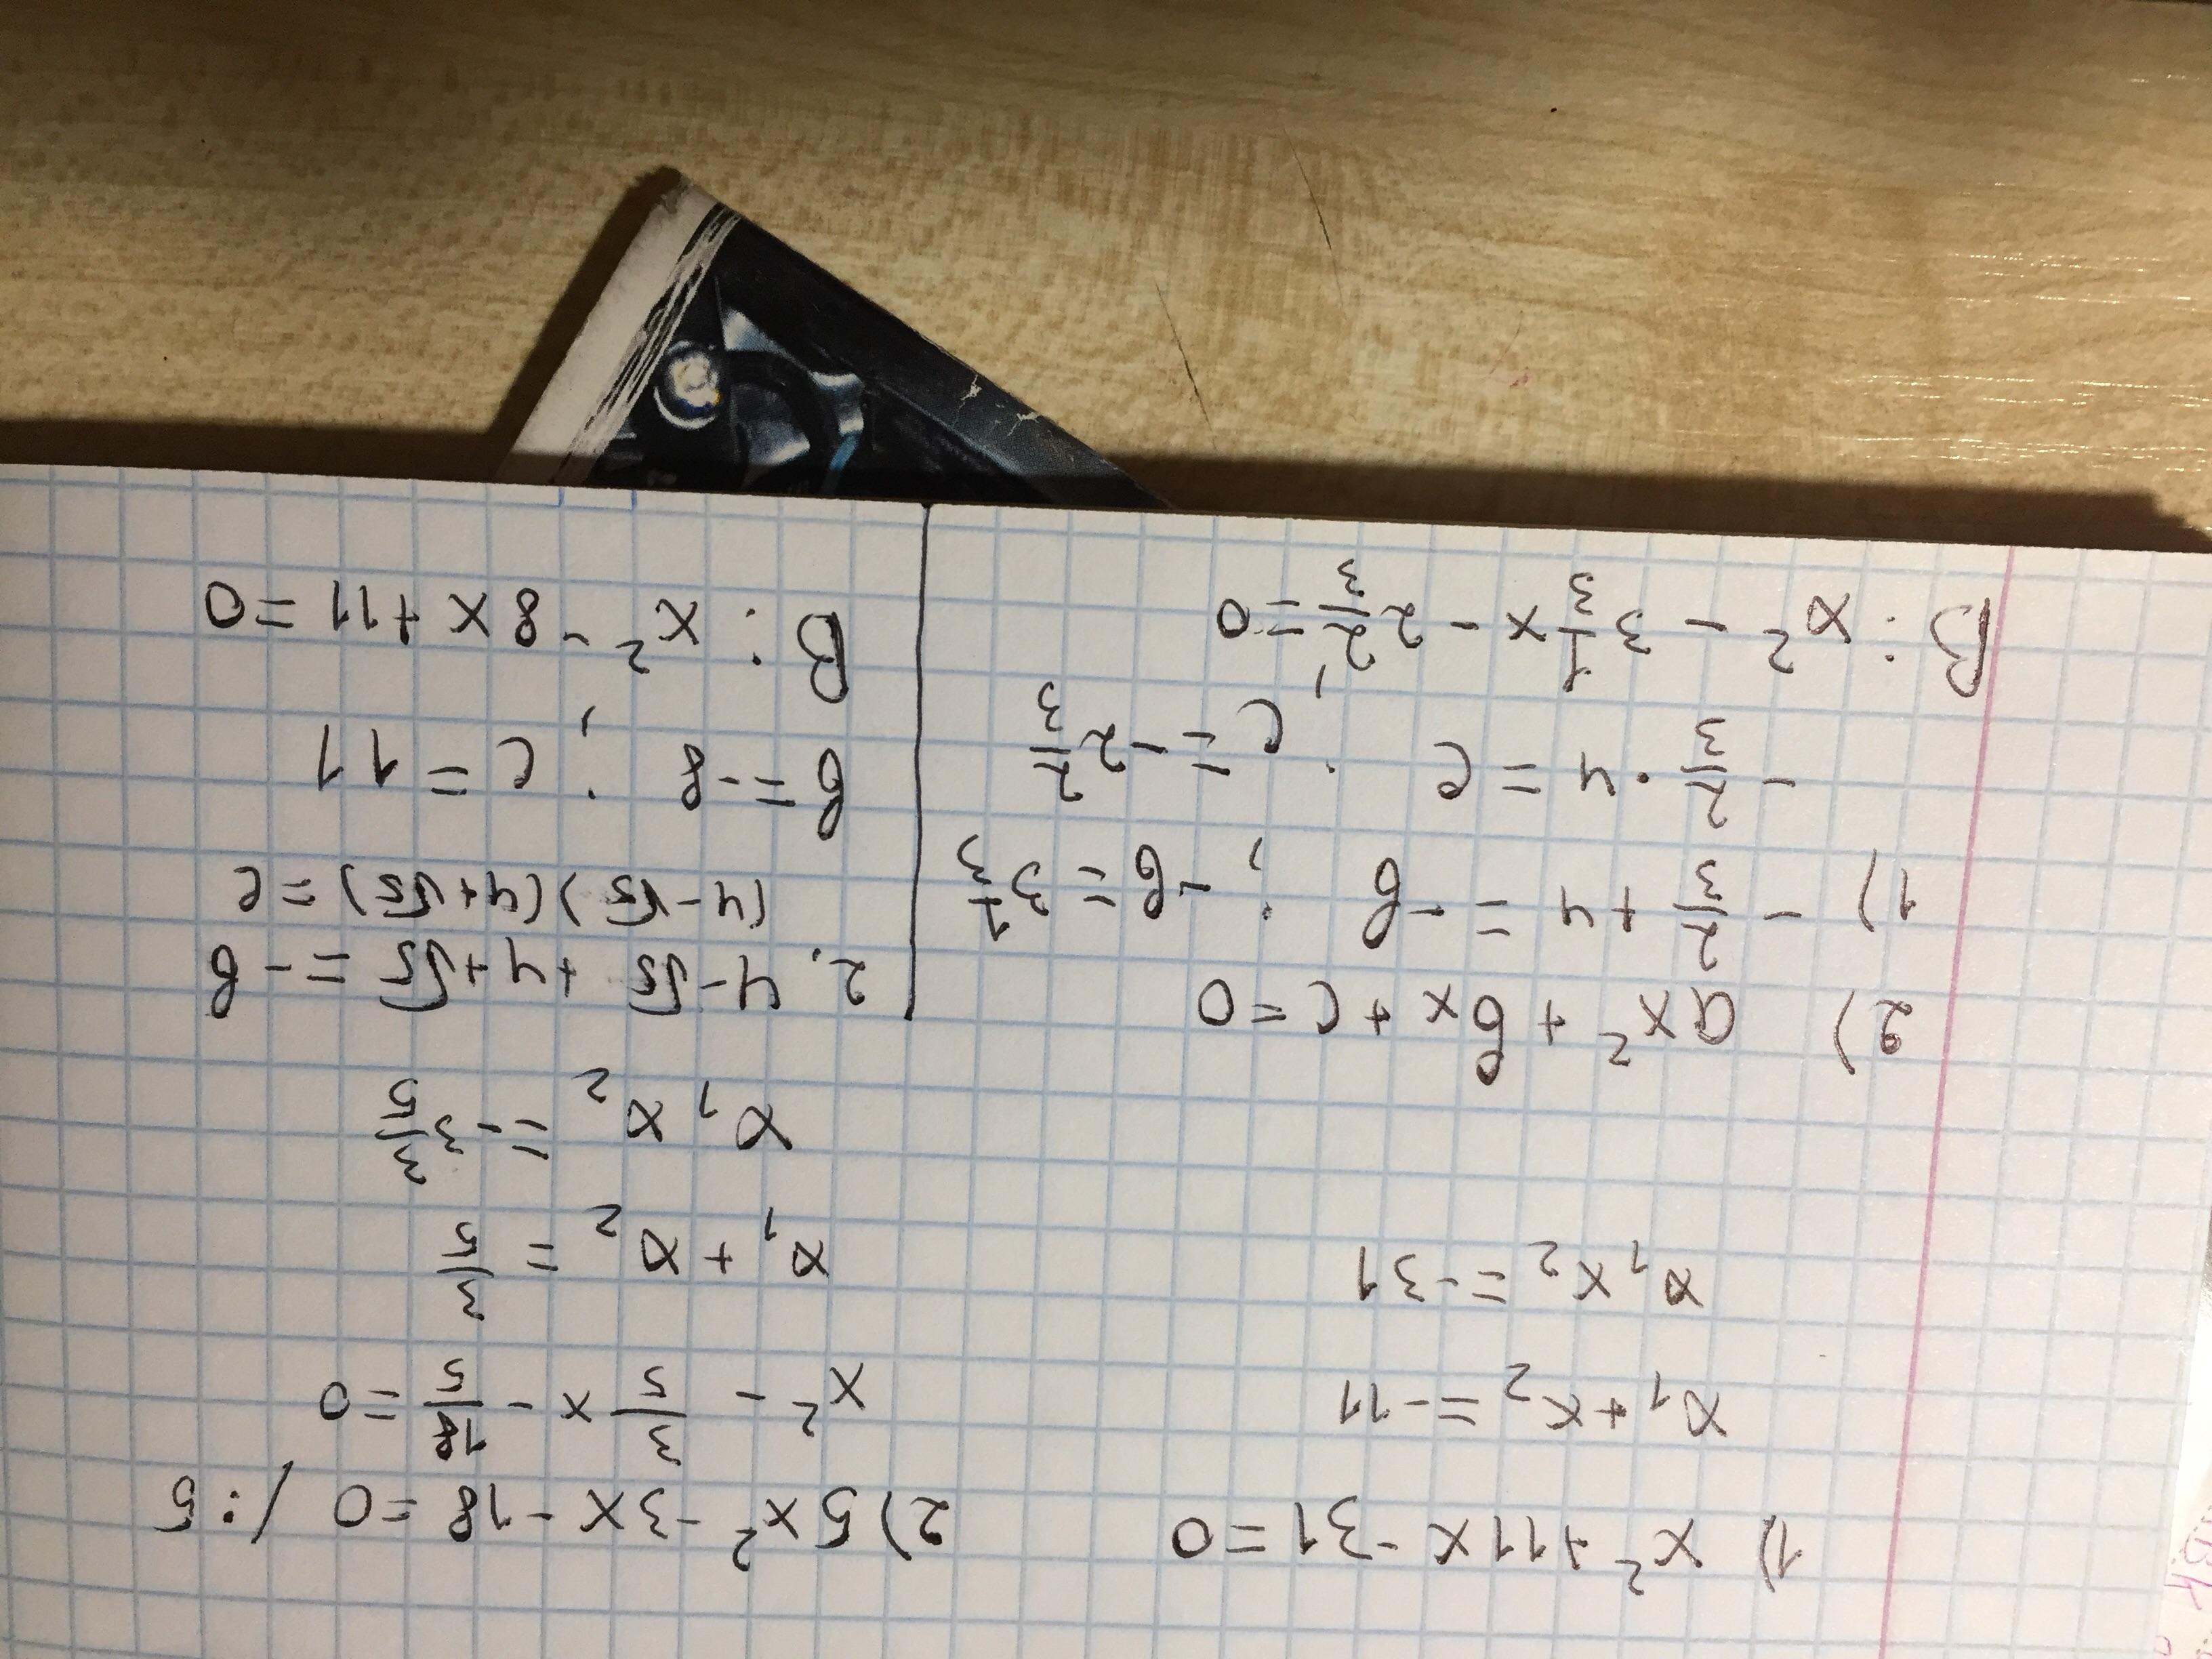 1) x² + 11x - 31 = 0
x₁ + x₂ = -11
x₁x₂ = -31
2) 5x² - 3x - 18 = 0 / :5
x² - 3/5 x - 18/5 = 0
x₁ + x₂ = 3/5
x₁x₂ = -3 3/5
2) ax² + вx + c = 0
1) - 2/3 + 4 = -в ; -в = 3 1/3
- 2/3 · 4 = c ; c = -2 2/3
В: x² - 3 1/3 x - 2 2/3 = 0
2. 4 - √5 + 4 + √5 = -в
(4 - √5)(4 + √5) = c
в = -8 ; c = 11
В: x² - 8x + 11 = 0